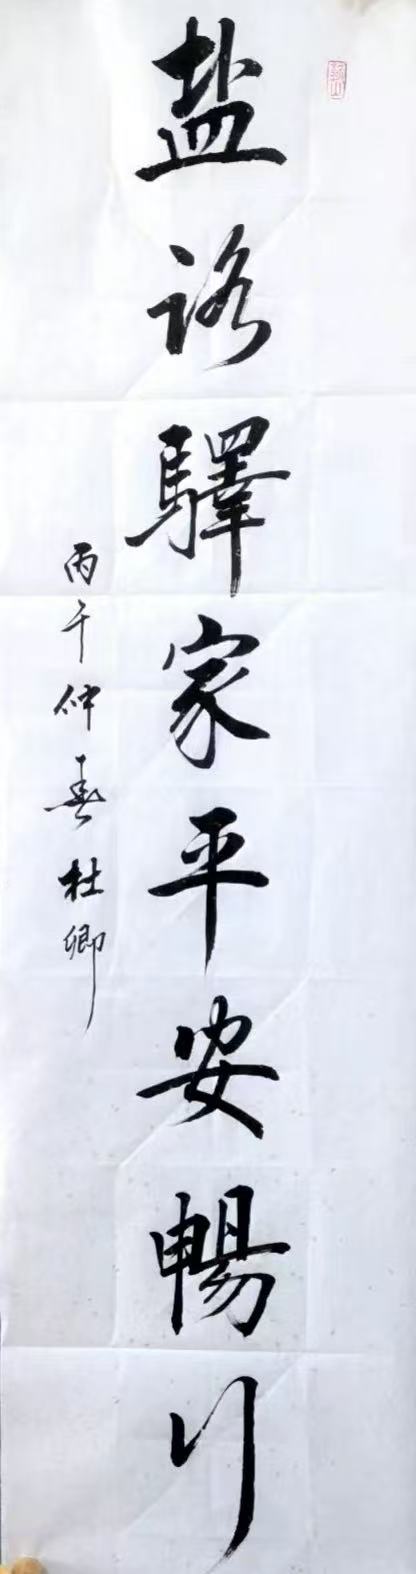 盐路驛家平安暢行
丙午仲春杜卿